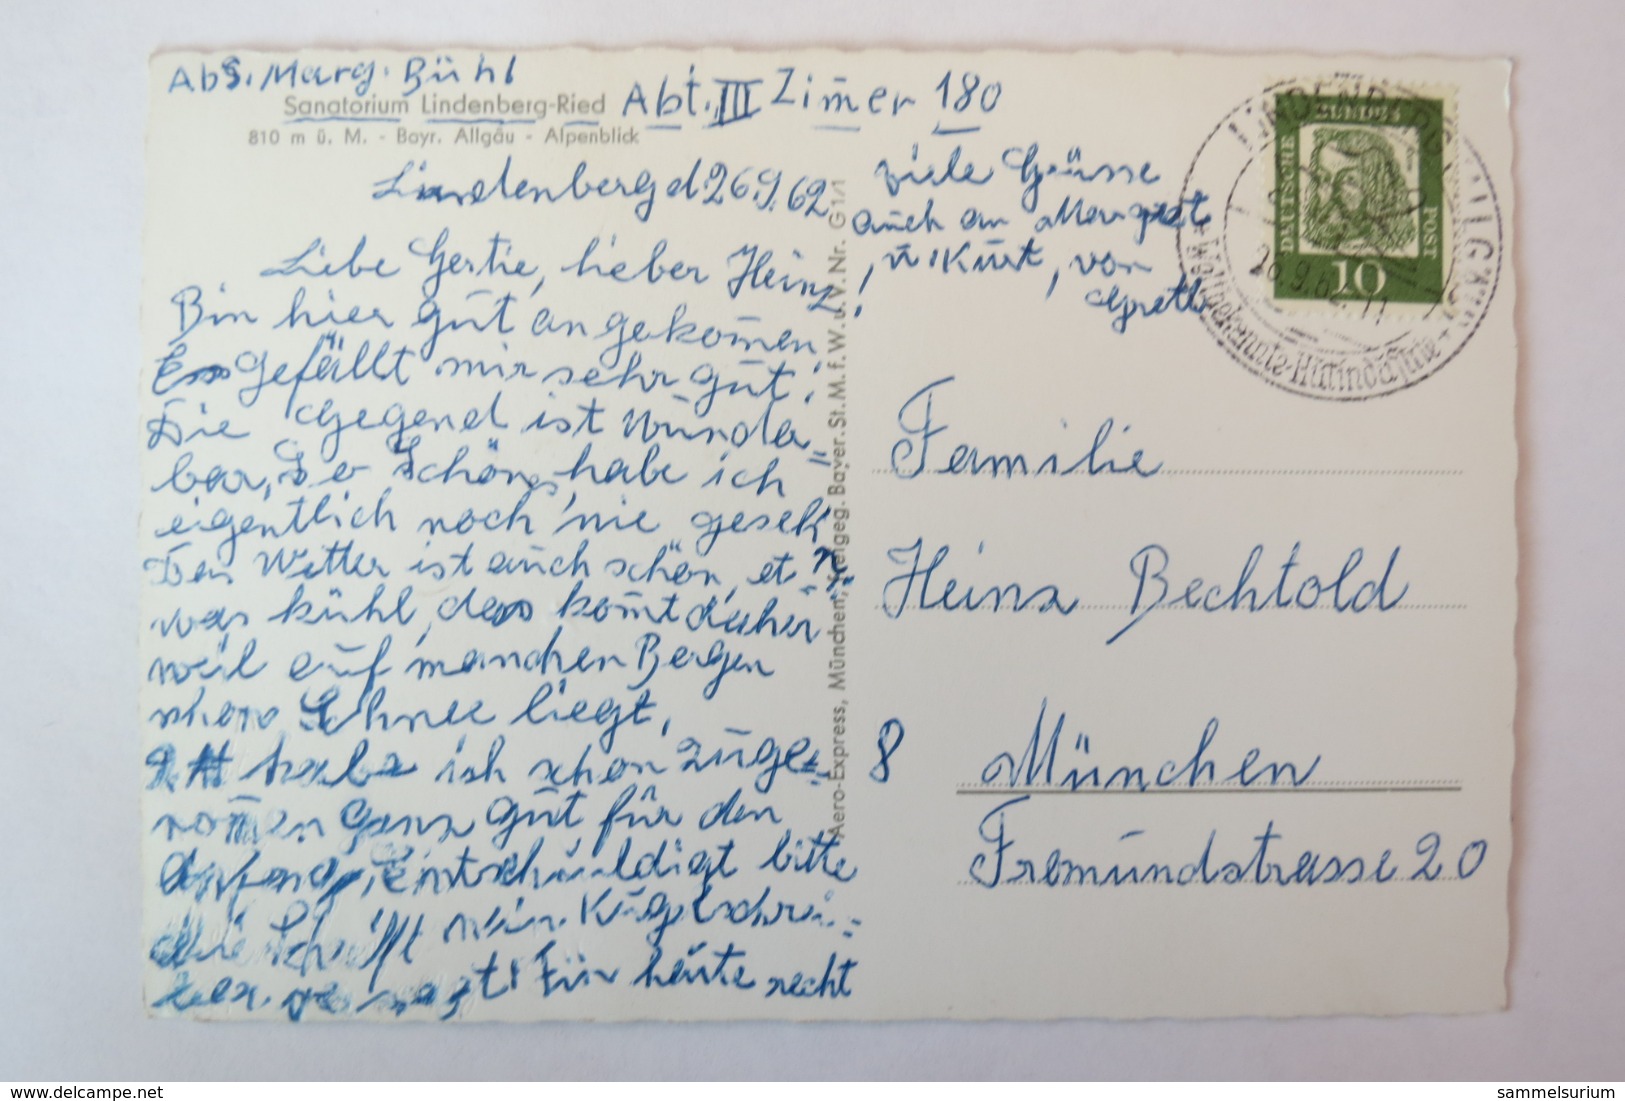 Abs. Marg. Bühl
Sanatorium Lindenberg-Ried
Abt. III Zim̄er 180
810 m ü. M. - Bayr. Allgäu - Alpenblick
Lindenberg d 26.9.62
Liebe Gertie, lieber Heinz!
Bin hier gut angekom̄en,
Es gefällt mir sehr gut!
Die Gegend ist wunda=
bar, so schön, habe ich
eigentlich noch nie geseh
n."
Das Wetter ist auch schön, et=
was kühl, das kom̄t daher
weil auf manchen Bergen
schon Schnee liegt,
habe ich schon zuge=
nom̄en ganz gut für den
Anfang, Entschuldigt bitte
die Schrift mein Kugelschrei=
ber versagt! Für heute recht
viele Grüsse
auch an Margret
u. Kurt, von
Gretl
Aero-Express, München, Freigeg. Bayer. St. M. f. W. u. V. Nr. G 1/1
DEUTSCHE
BUNDES
POST
10
LINDENBERG
26.9.62.-11
Familie
Heinz Bechtold
8 München
Fremundstrasse 20
delcampe.net
sammelsurium